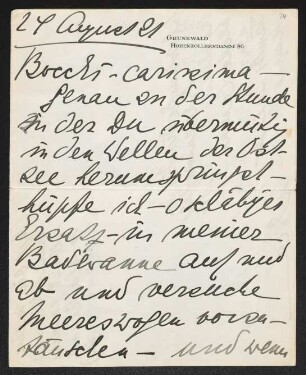 24 August 21
74
GRUNEWALD
HOHENZOLLERNDAMM 86
Bocchi-carissima-
genau zu der Stunde
in der Du übermütig
in den Wellen der Ost-
see herumspringst-
hüpfe ich - o kläbjes
Ersatz - in meiner
Badewanne auf und
ab und versuche
Meereswogen vorzu-
täuschen - und wenn